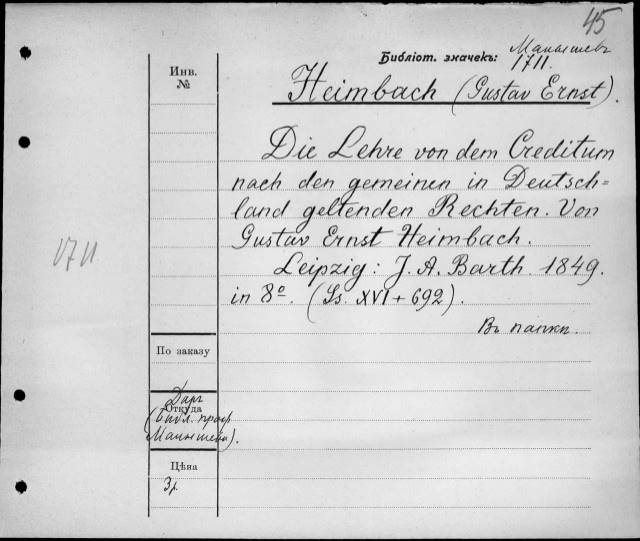 45
Малышевъ
Библіот. значекъ: 1711.
Инв.
№
Heimbach (Gustav Ernst).
Die Lehre von dem Creditum
nach den gemeinen in Deutsch=
land geltenden Rechten. Von
Gustav Ernst Heimbach.
1711
Leipzig: J. A. Barth. 1849.
in 8º. (Ss. XVI + 692).
Въ папкѣ.
По заказу
Даръ
Откуда
(Библ. проф.
Малышева).
Цѣна
3 р.